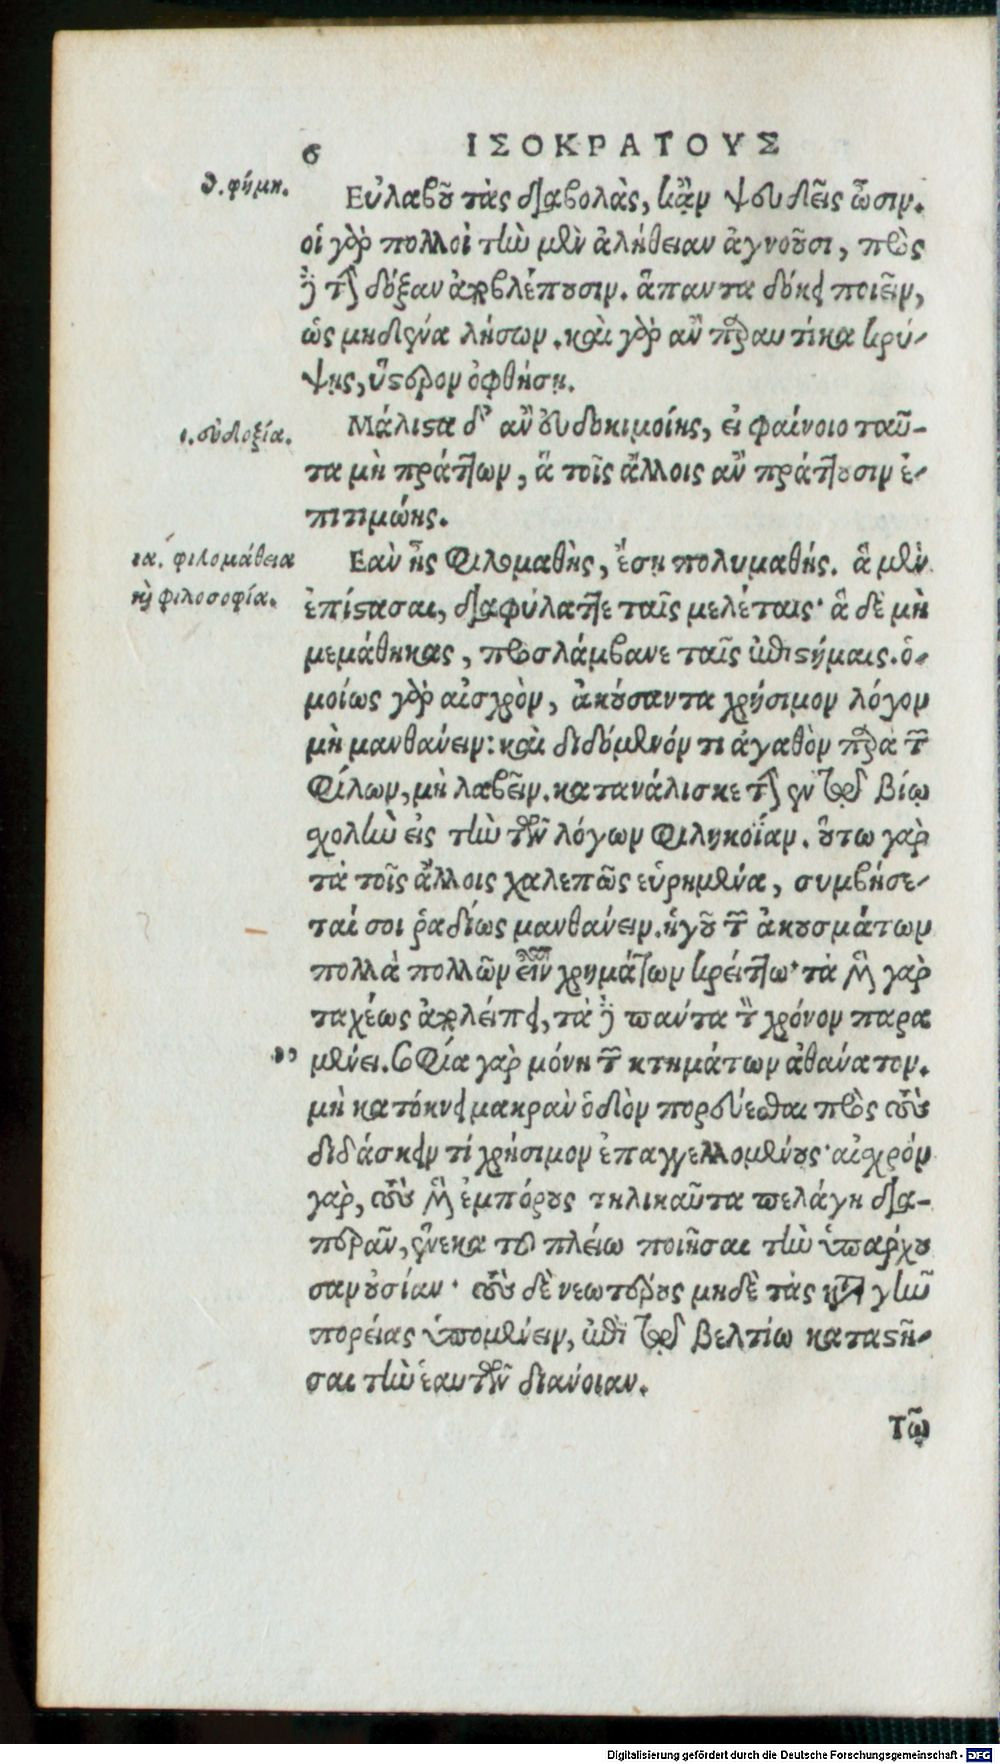 6 ΙΣΟΚΡΑΤΟΥΣ
θ. φήμη.
Εὐλαβοῦ τὰς διαβολὰς, κἂν ψευδεῖς ὦσιν.
οἱ γὰρ πολλοὶ τὴν μὲν ἀλήθειαν ἀγνοοῦσι, πρὸς
δὲ τὴν δόξαν ἀποβλέπουσιν. ἅπαντα δόκει ποιεῖν,
ὡς μηδένα λήσων. καὶ γὰρ ἂν παραυτίκα κρύ-
ψῃς, ὕστερον ὀφθήσῃ.
ι. εὐδοξία.
Μάλιστα δ' ἂν εὐδοκιμοίης, εἰ φαίνοιο ταῦ-
τα μὴ πράττων, ἃ τοῖς ἄλλοις ἂν πράττουσιν ἐ-
πιτιμῴης.
ια. φιλομάθεια
καὶ φιλοσοφία.
Εὰν ᾖς φιλομαθὴς, ἔσῃ πολυμαθής. ἃ μὲν
ἐπίστασαι, διαφύλαττε ταῖς μελέταις· ἃ δὲ μὴ
μεμάθηκας, προσλάμβανε ταῖς ἐπιστήμαις. ὁ-
μοίως γὰρ αἰσχρὸν, ἀκούσαντα χρήσιμον λόγον
μὴ μανθάνειν: καὶ διδόμενόν τι ἀγαθὸν παρὰ τῶν
φίλων, μὴ λαβεῖν. κατανάλισκε τὴν ἐν τῷ βίῳ
σχολὴν εἰς τὴν τῶν λόγων φιληκοΐαν. οὕτω γὰρ
τὰ τοῖς ἄλλοις χαλεπῶς εὑρημένα, συμβήσε-
ταί σοι ῥαδίως μανθάνειν. ἡγοῦ τῶν ἀκουσμάτων
πολλὰ πολλῶν εἶναι χρημάτων κρείττω· τὰ μὲν γὰρ
ταχέως ἀπολείπει, τὰ δὲ πάντα τὸν χρόνον παρα
μένει. σοφία γὰρ μόνη τῶν κτημάτων ἀθάνατον.
μὴ κατόκνει μακρὰν ὁδὸν πορεύεσθαι πρὸς τοὺς
διδάσκειν τι χρήσιμον ἐπαγγελλομένους· αἰσχρόν
γὰρ, τοὺς μὲν ἐμπόρους τηλικαῦτα πελάγη δια-
περᾶν, ἕνεκα τοῦ πλείω ποιῆσαι τὴν ὑπάρχου
σαν οὐσίαν· τοὺς δὲ νεωτέρους μηδὲ τὰς κατὰ γῆν
πορείας ὑπομένειν, ἐπὶ τῷ βελτίω καταστῆ-
σαι τὴν ἑαυτῶν διάνοιαν.
Τῷ
Digitalisierung gefördert durch die Deutsche Forschungsgemeinschaft - DFG